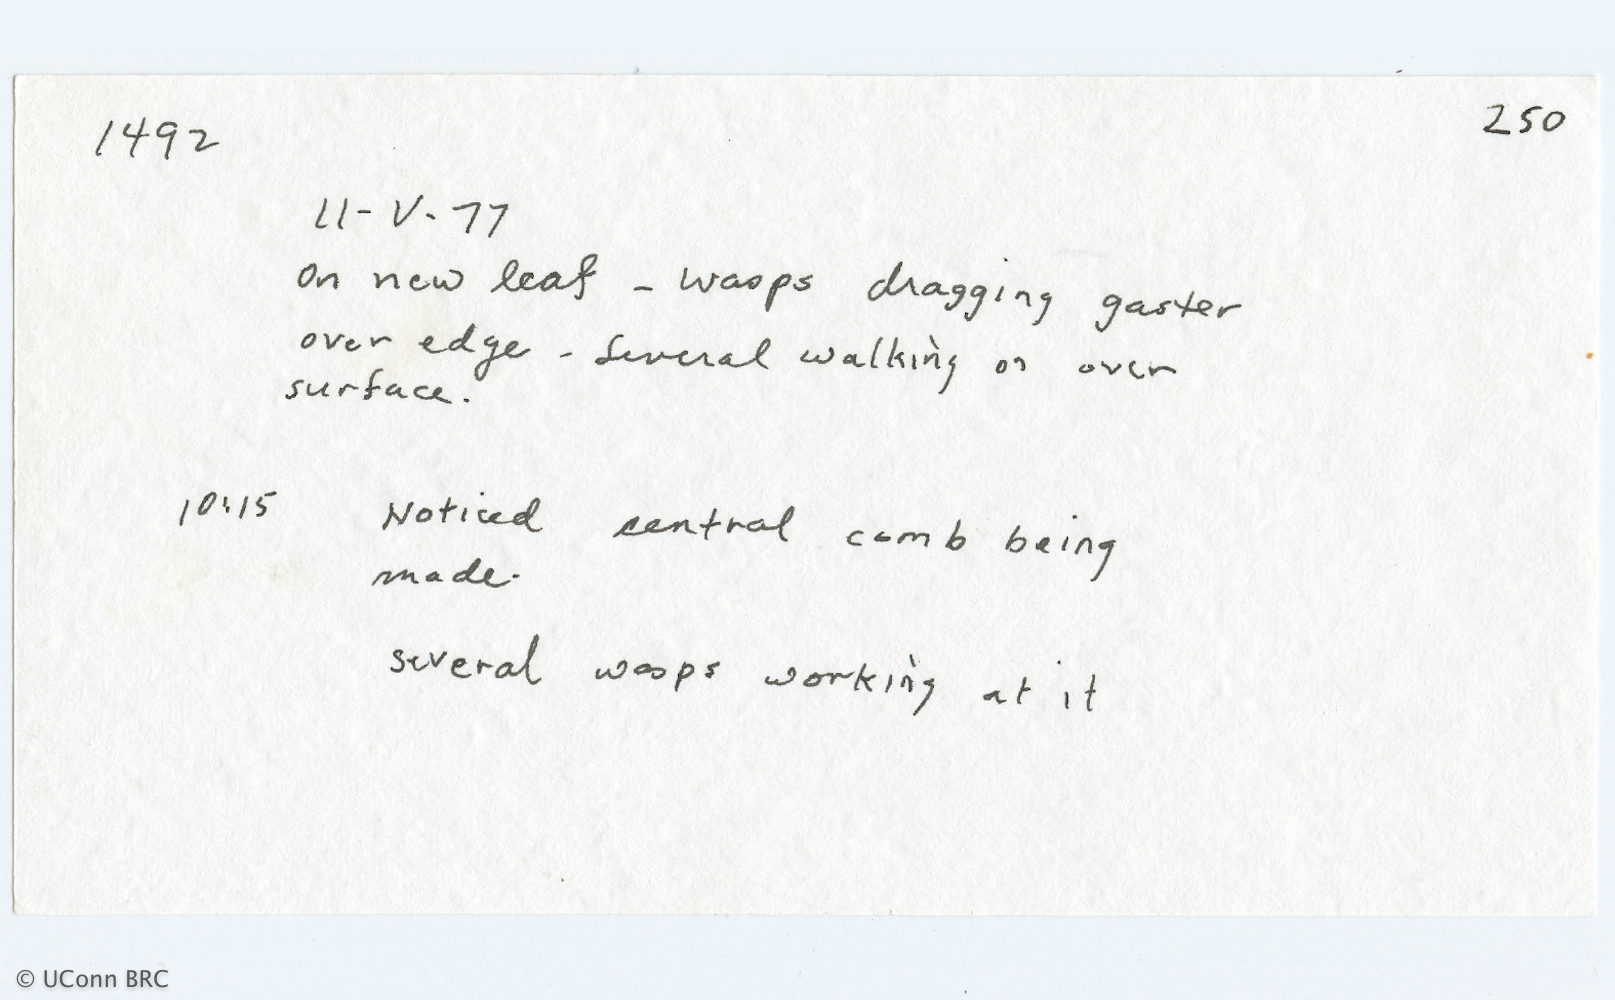 1492
250
11-V-77
On new leaf - wasps dragging gaster
over edge - Several walking on over
surface.
10:15 Noticed central comb being
made.
several wasps working at it
© UConn BRC